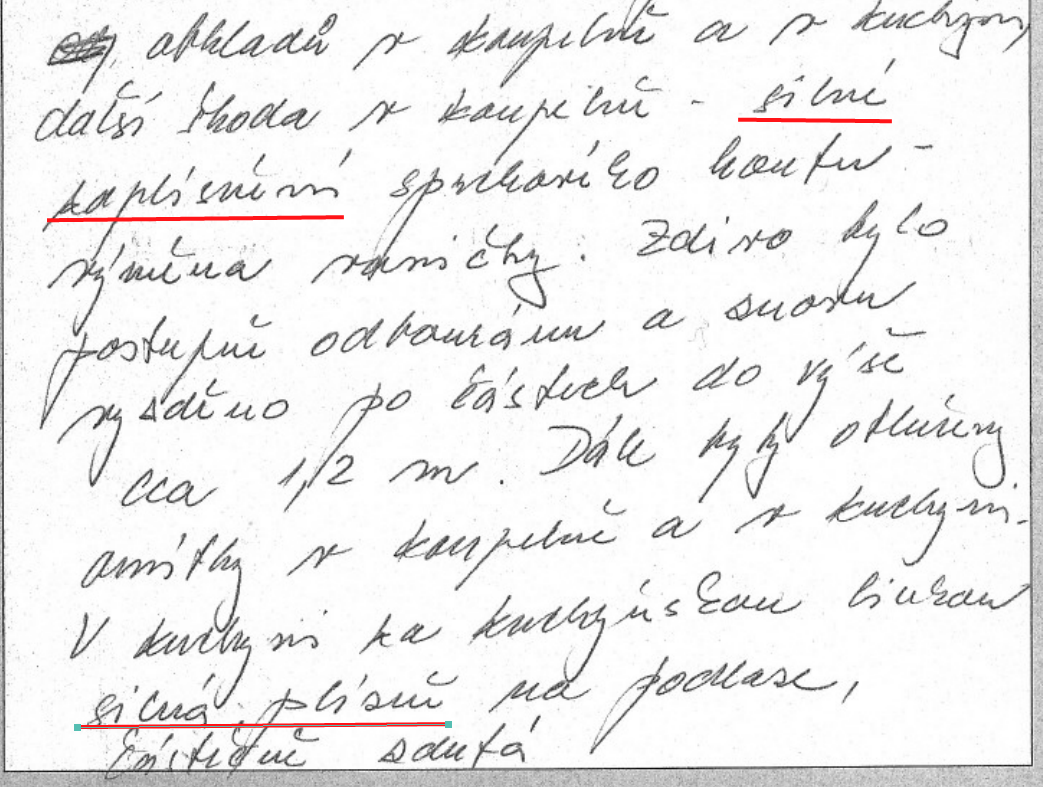 obkladů v koupelně a v kuchyni,
další škoda v koupelně - silné
zaplísnění sprchového koutu -
výměna vaničky. Zdivo bylo
postupně odbouráno a znovu
vyzděno po částech do výše
cca 1,2 m. Dále byly otlučeny
omítky v koupelně a v kuchyni.
V kuchyni za kuchyňskou linkou
silná plíseň na podlaze,
částečně zdutá